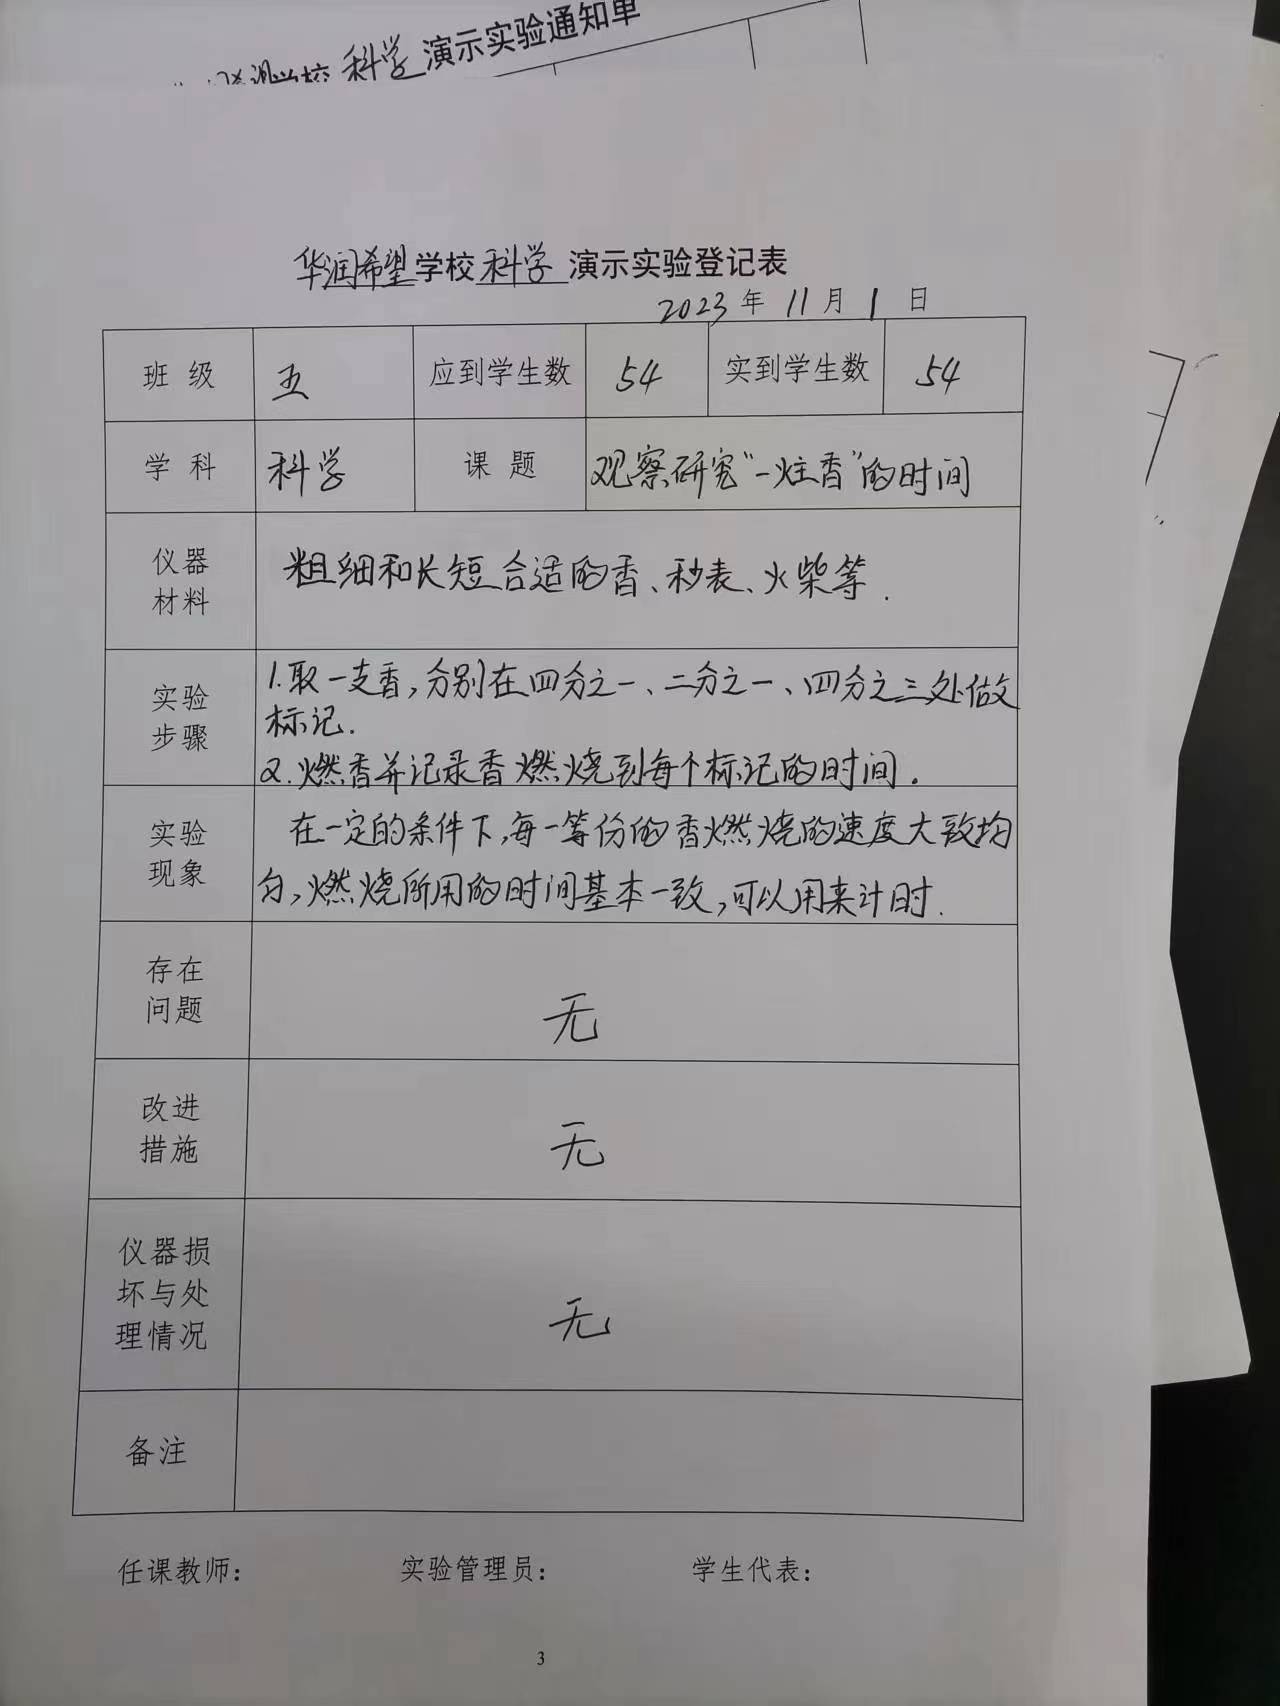 科学 演示实验通知单
华润希望学校 科学 演示实验登记表
2023 年 11 月 1 日
班 级 五 应到学生数 54 实到学生数 54
学 科 科学 课 题 观察研究“一炷香”的时间
仪器
材料
粗细和长短合适的香、秒表、火柴等.
实验
步骤
1.取一支香,分别在四分之一、二分之一、四分之三处做
标记.
2.燃香并记录香燃烧到每个标记的时间.
实验
现象
在一定的条件下,每一等份的香燃烧的速度大致均
匀,燃烧所用的时间基本一致,可以用来计时.
存在
问题
无
改进
措施
无
仪器损
坏与处
理情况
无
备注
任课教师: 实验管理员: 学生代表:
3